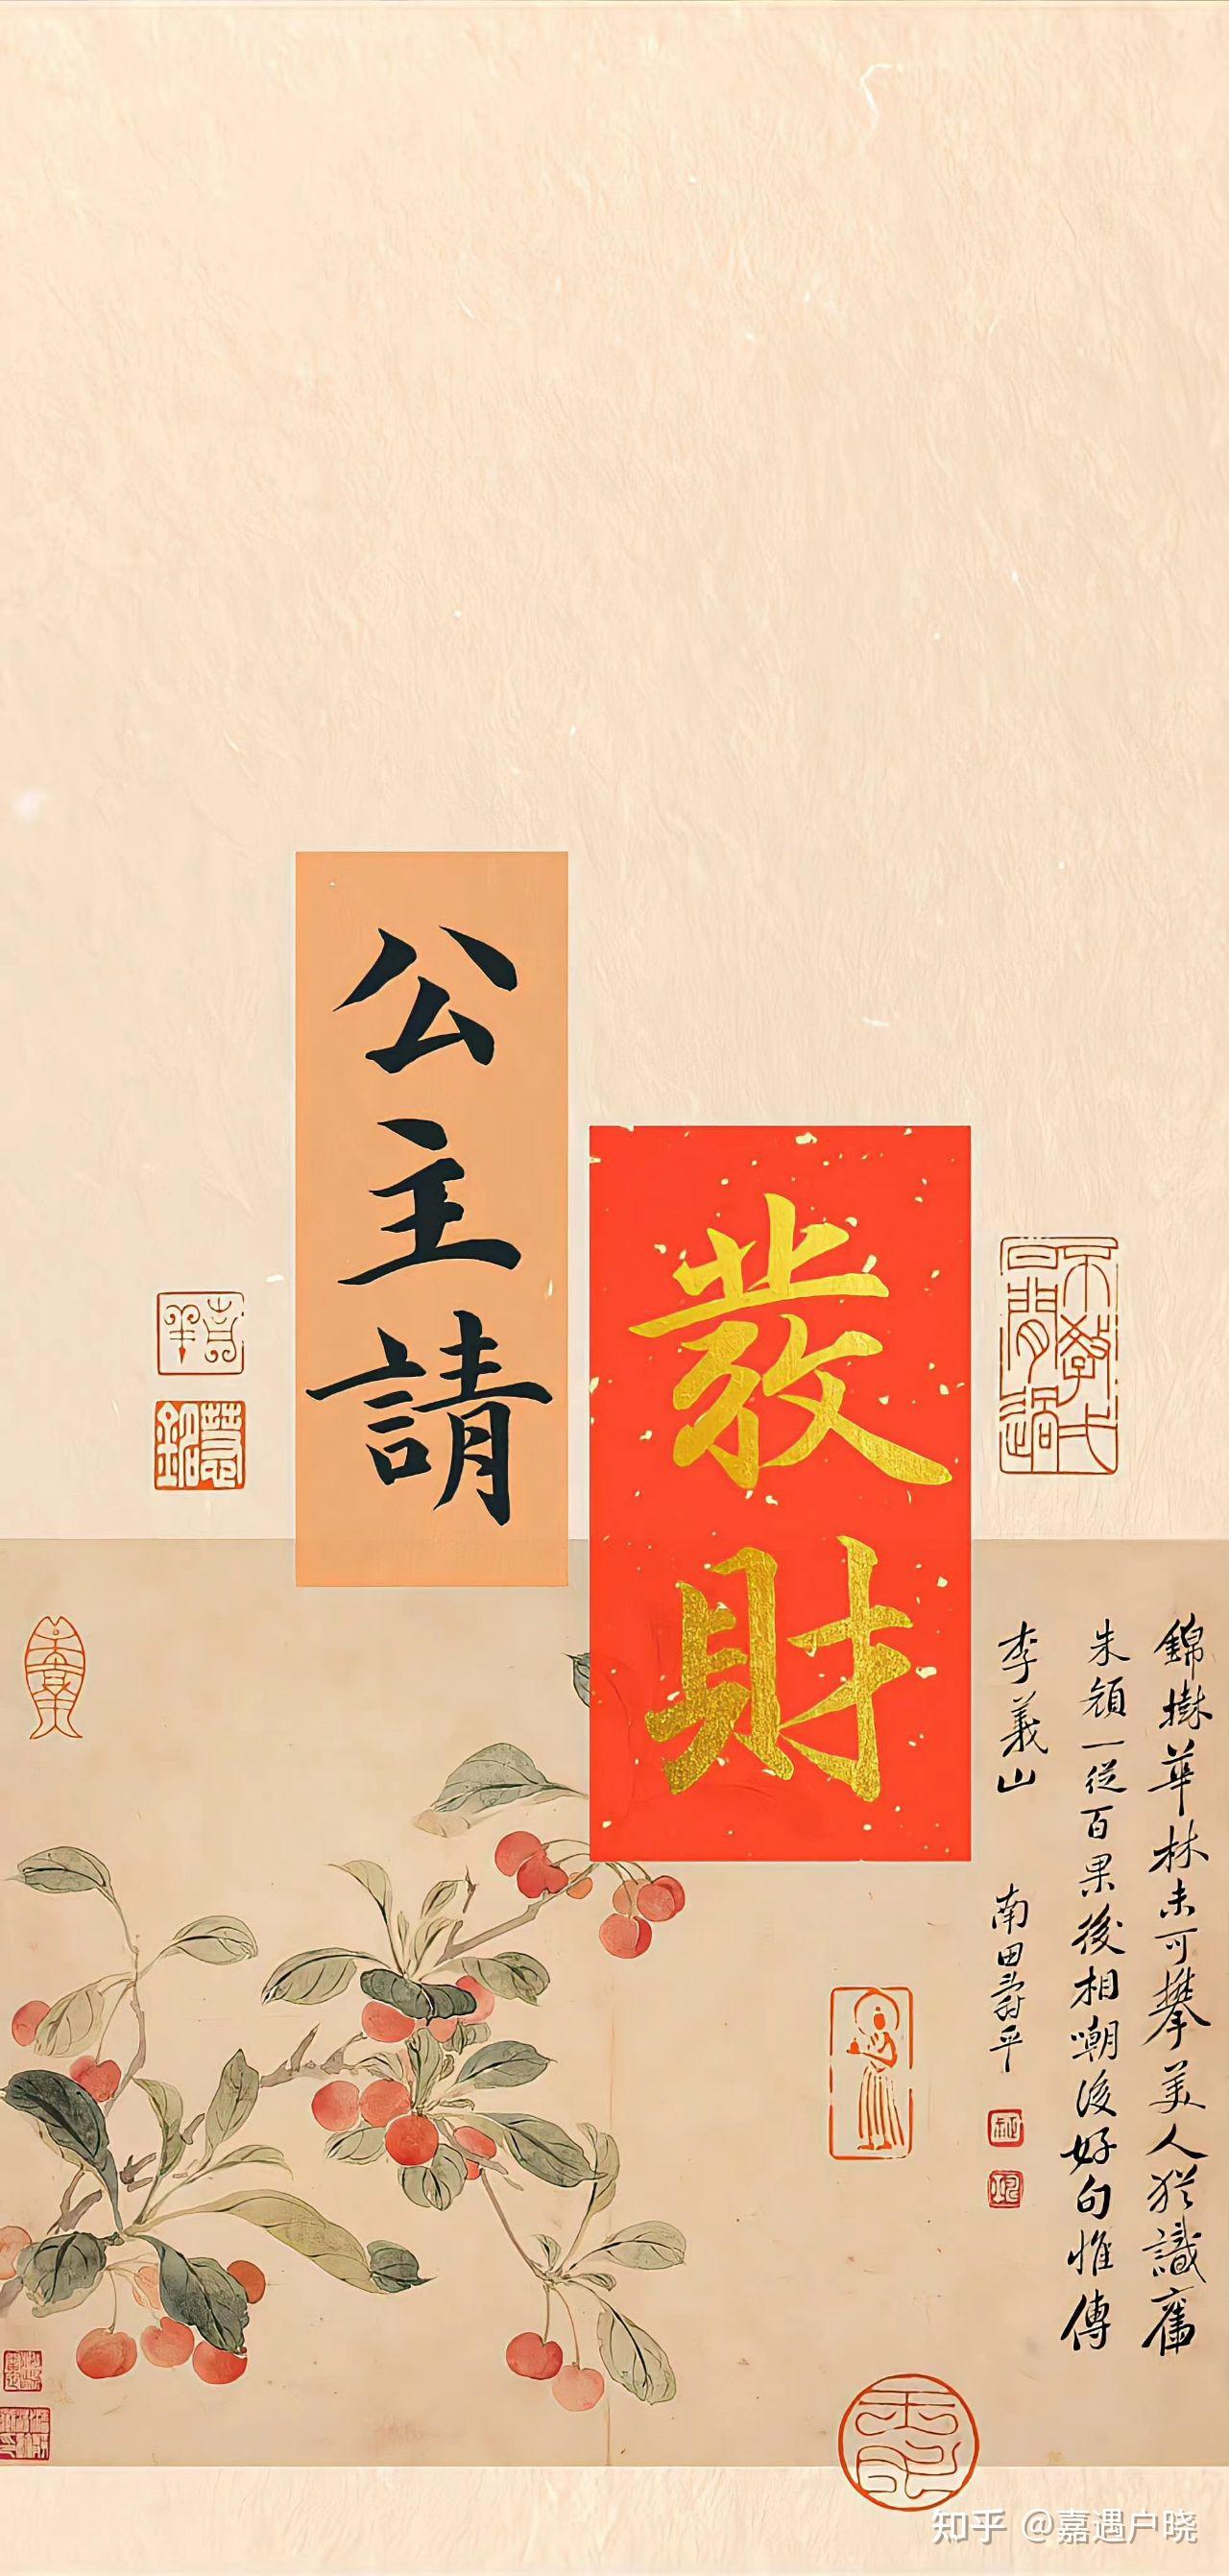 公主請
發財
錦樹華林未可攀美人猶識舊
朱顏一從百果後相嘲後好句惟傳
李義山
南田壽平
知乎 @嘉遇户晓